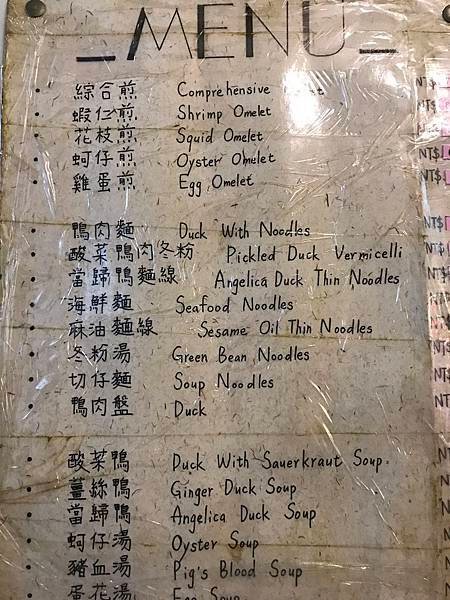 MENU
綜合煎 Comprehensive
蝦仁煎 Shrimp Omelet
花枝煎 Squid Omelet
蚵仔煎 Oyster Omelet
雞蛋煎 Egg Omelet
鴨肉麵 Duck With Noodles
酸菜鴨肉冬粉 Pickled Duck Vermicelli
當歸鴨麵線 Angelica Duck Thin Noodles
海鮮麵 Seafood Noodles
麻油麵線 Sesame Oil Thin Noodles
冬粉湯 Green Bean Noodles
切仔麵 Soup Noodles
鴨肉盤 Duck
酸菜鴨 Duck With Sauerkraut Soup
薑絲鴨 Ginger Duck Soup
當歸鴨 Angelica Duck Soup
蚵仔湯 Oyster Soup
豬血湯 Pig's Blood Soup
蛋花湯 Egg Soup
NT$
NT$
NT$
NT$
NT$
NT$
NT$
NT$
NT$
NT$